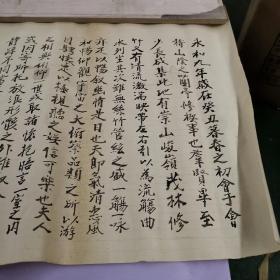 永和九年歲在癸丑暮春之初會于會
稽山陰之蘭亭修禊事也羣賢畢至
少長咸集此地有崇山峻嶺茂林修
竹又有清流激湍映帶左右引以為流觴曲
水列坐其次雖無絲竹管絃之盛一觴一詠
亦足以暢敘幽情是日也天朗氣清惠風
和暢仰觀宇宙之大俯察品類之所以游
目騁懷足以極視聽之娛信可樂也夫人
之相與俯仰一世或取諸懷抱悟言一室之內
或因寄所託放浪形骸之外雖
靜躁不同